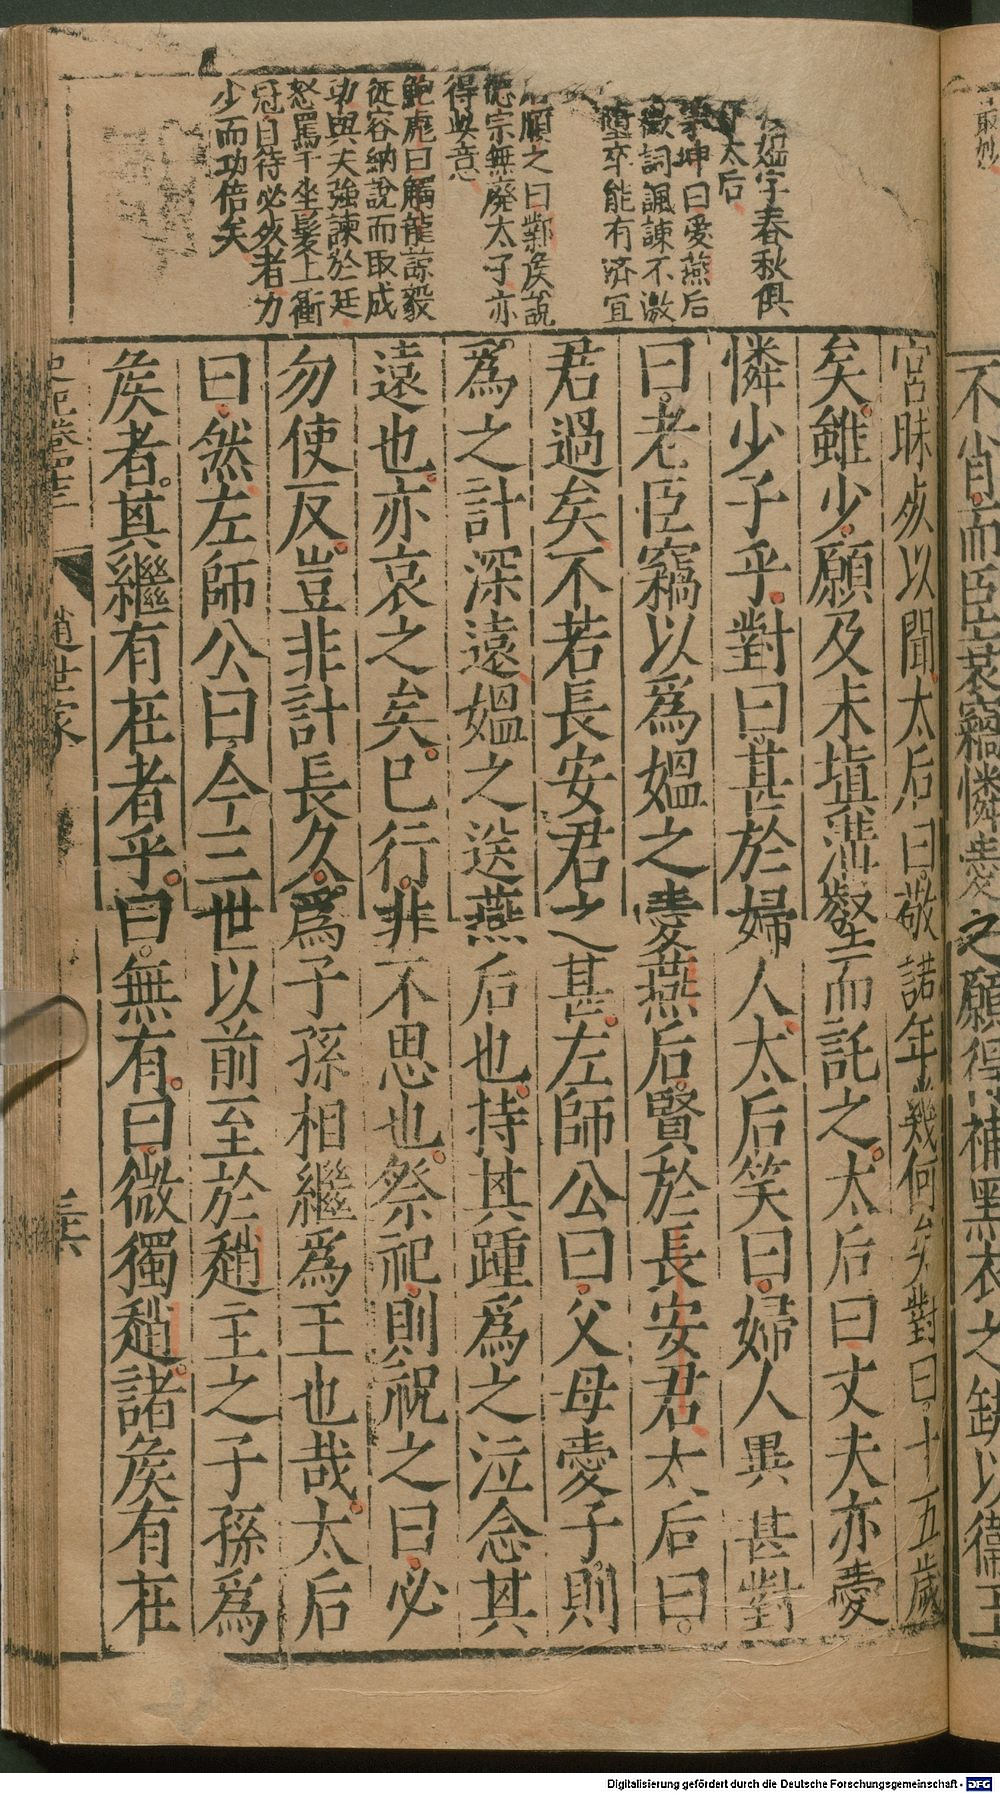 最妙
不肖而臣衰竊憐愛之願得補黑衣之缺以衞王
宮昧死以聞太后曰敬諾年幾何矣對曰十五歲
矣雖少願及未塡溝壑而託之太后曰丈夫亦愛
憐少子乎對曰甚於婦人太后笑曰婦人異甚對
曰老臣竊以爲媼之愛燕后賢於長安君太后曰
君過矣不若長安君之甚左師公曰父母愛子則
爲之計深遠媼之送燕后也持其踵爲之泣念其
遠也亦哀之矣已行非不思也祭祀則祝之曰必
勿使反豈非計長久爲子孫相繼爲王也哉太后
曰然左師公曰今三世以前至於趙主之子孫爲
矦者其繼有在者乎曰無有曰微獨趙諸矦有在
字春秋俱
太后
坤曰愛燕后
詞諷諫不激
墮卒能有濟宜
願之曰鄴矦說
德宗無廢太子亦
得此意
鮑彪曰觸龍諒毅
從容納說而取成
功與夫強諫於廷
怒罵于坐髮上衝
冠自待必死者力
少而功倍矣
史記卷四十三
趙世家
三六
Digitalisierung gefördert durch die Deutsche Forschungsgemeinschaft - DFG